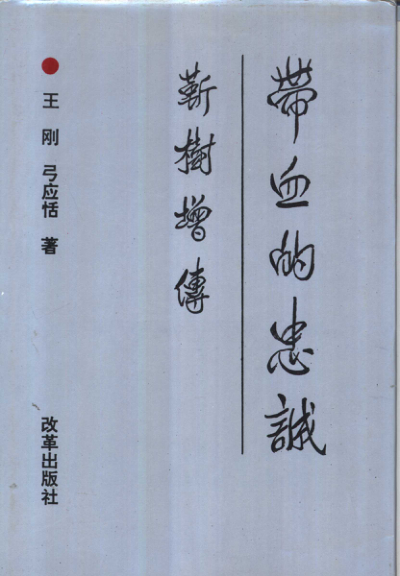 帶血的忠誠
靳樹增傳
王刚 弓应恬 著
改革出版社